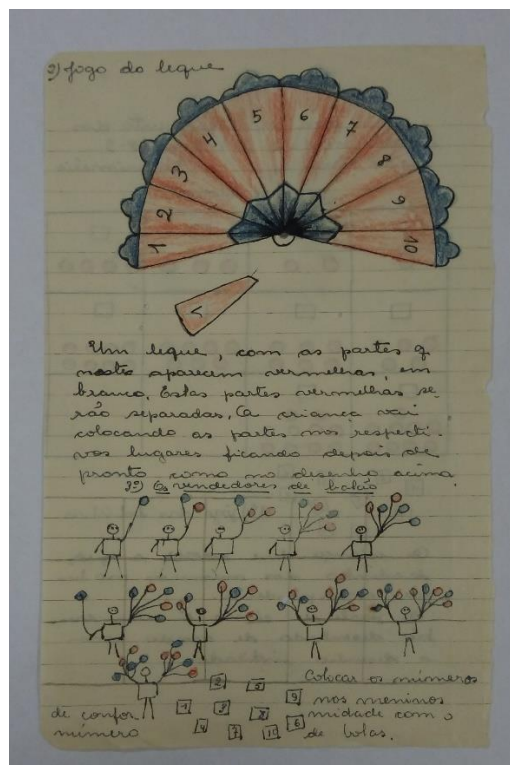 2) Jogo do leque
1 2 3 4 5 6 7 8 9 10
1
Um leque, com as partes q
neste aparecem vermelhas, em
branco. Estas partes vermelhas se-
rão separadas. A criança vai
colocando as partes nos respecti-
vos lugares ficando depois de
pronto como no desenho acima.
3º) Os vendedores de balão
Colocar os números
nos meninos
de confor- midade com o
número de bolas.